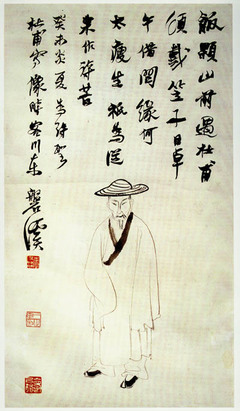 飯顆山前遇杜甫
頭戴笠子日卓
午借問緣何
太瘦生祇為從
来作詩苦
癸未炎夏為詩聖
杜甫寫像時客川東
磐溪